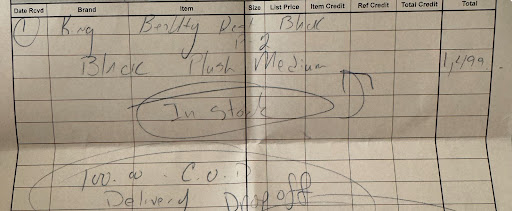 Date Rcvd Brand Item Size List Price Item Credit Ref Credit Total Credit Total
1 King Beauty Rest Black
2
Black Plush Medium 1,499
In stock
100.00 C.O.D
Delivery Drop off